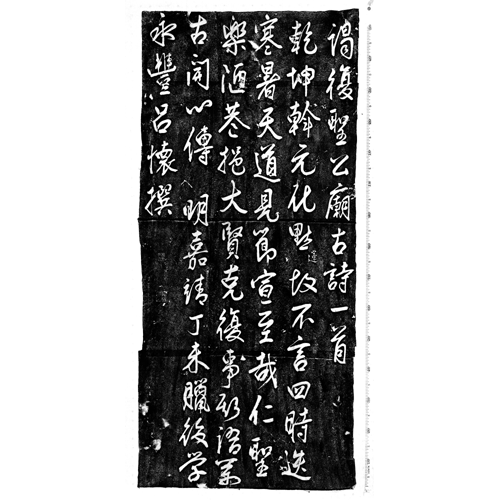 謁復聖公廟古詩一首
乾坤斡元化默運故不言四時迭
寒暑天道見節宣至哉仁聖
樂陋巷挹大賢克復事斯語萬
古闻心傳 明嘉靖丁未臘後学
永豐呂懷撰